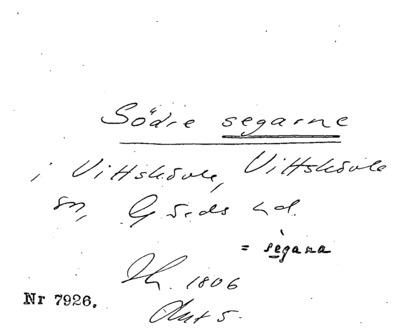 Södre segarne
i Vittskövle, Vittskövle
sn, Gärds hd.
= sègana
Sk. 1806
Akt 5.
Nr 7926.